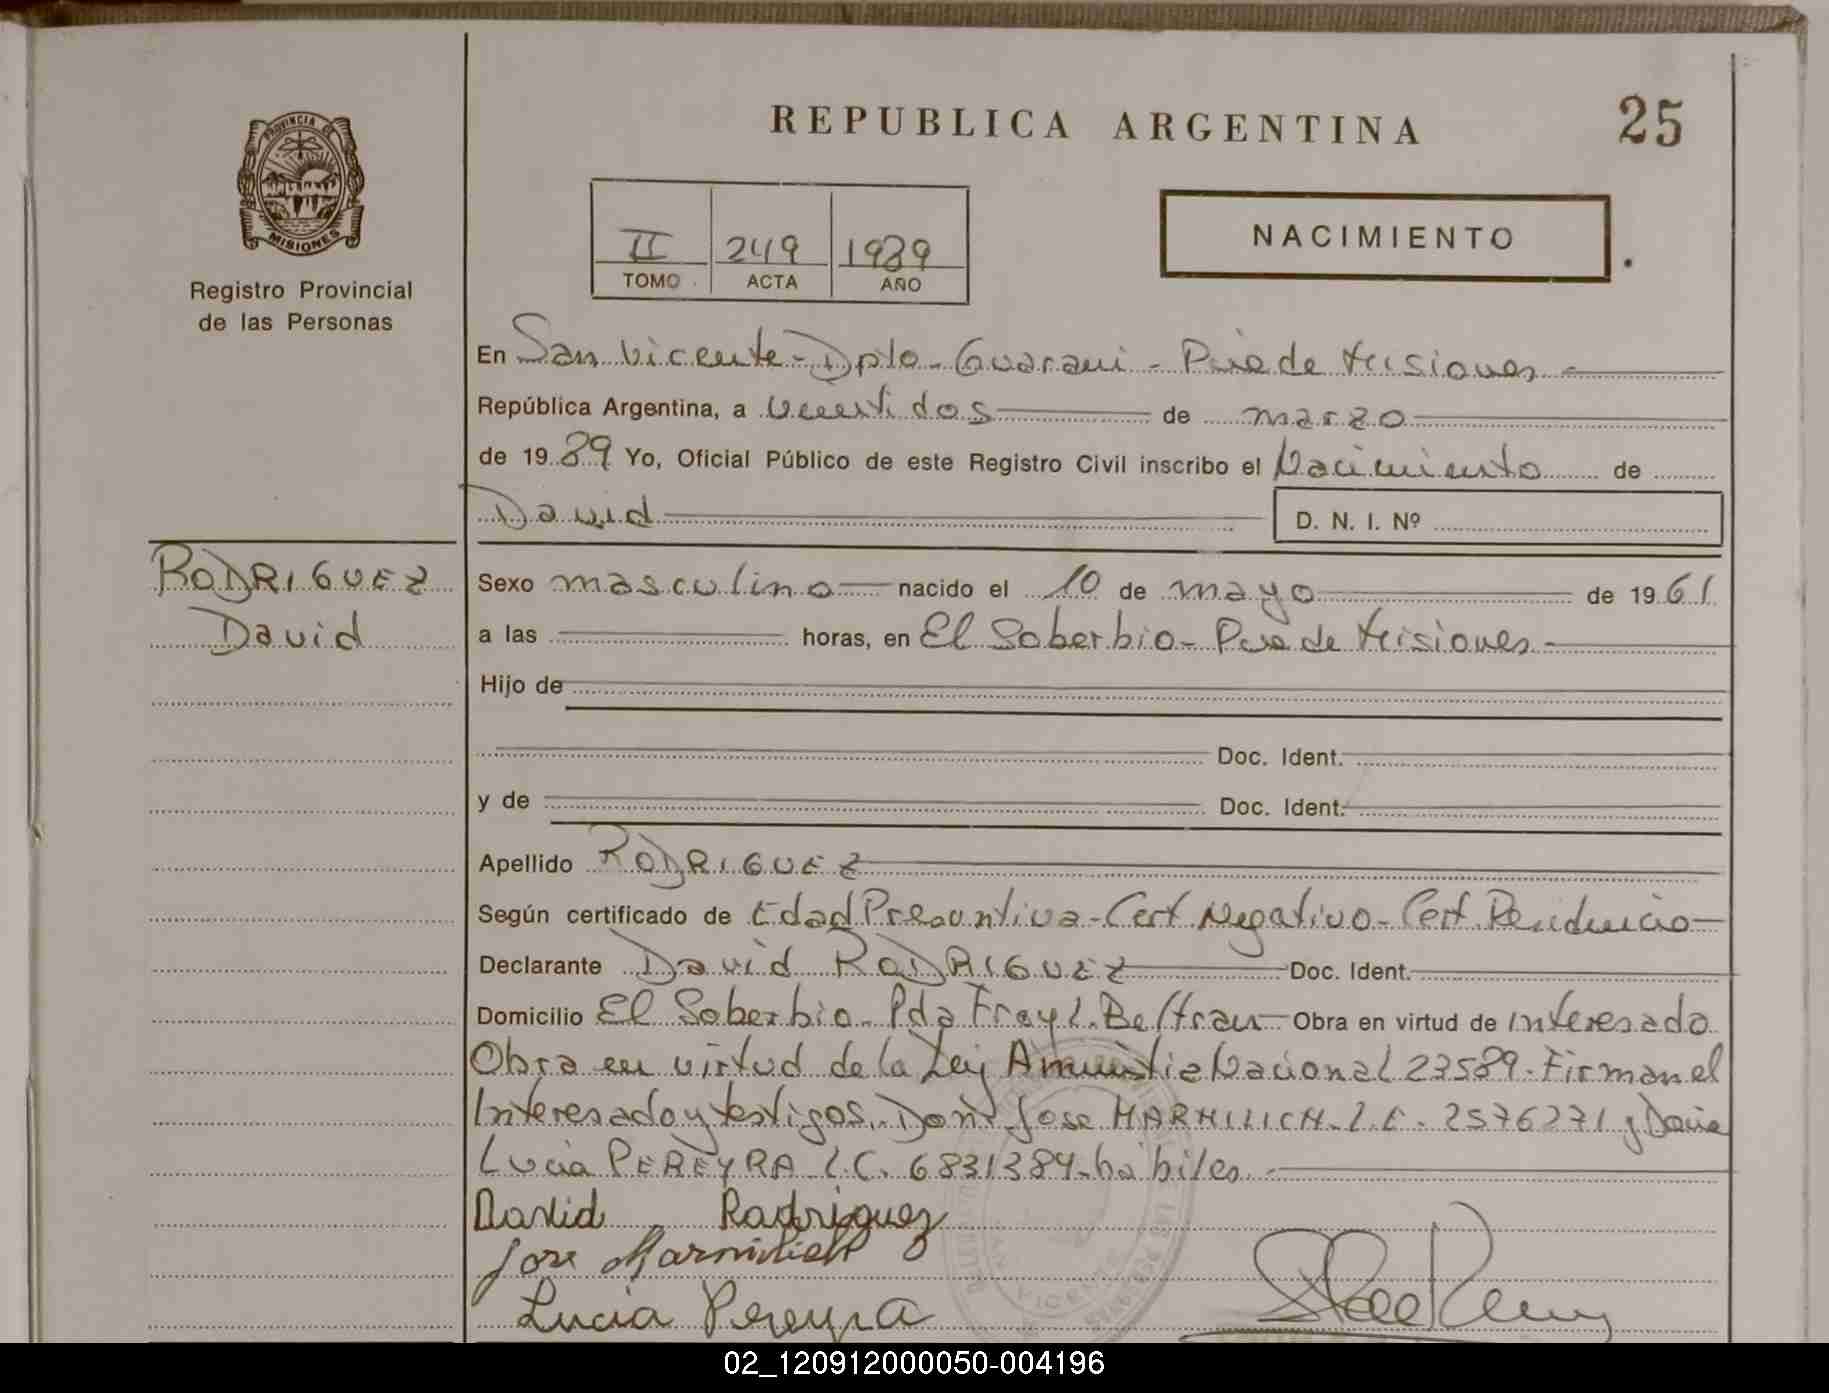 REPUBLICA ARGENTINA
25
PROVINCIA DE
MISIONES
Registro Provincial
de las Personas
II 249 1989
TOMO ACTA AÑO
NACIMIENTO
En San Vicente - Dpto - Guarani - Pcia de Misiones
República Argentina, a veintidos de marzo
de 1989 Yo, Oficial Público de este Registro Civil inscribo el Nacimiento de
David D. N. I. Nº
RODRIGUEZ
David
Sexo masculino nacido el 10 de mayo de 1961
a las horas, en El Soberbio - Pcia de Misiones -
Hijo de
Doc. Ident.
y de Doc. Ident.
Apellido RODRIGUEZ
Según certificado de Edad Presuntiva - Cert. Negativo - Cert. Residencia
Declarante David RODRIGUEZ Doc. Ident.
Domicilio El Soberbio - Pda Fray L. Beltran Obra en virtud de interesado
Obra en virtud de la Ley Amnistia Nacional 23589 - Firman el
Interesado y testigos. Don Jose MARMILICH - L.E. 2576271 y Doña
Lucia PEREYRA L.C. 6831384 - habiles -
David Rodriguez
Jose Marmilich
Lucia Pereyra
SAN VICENTE
02_120912000050-004196